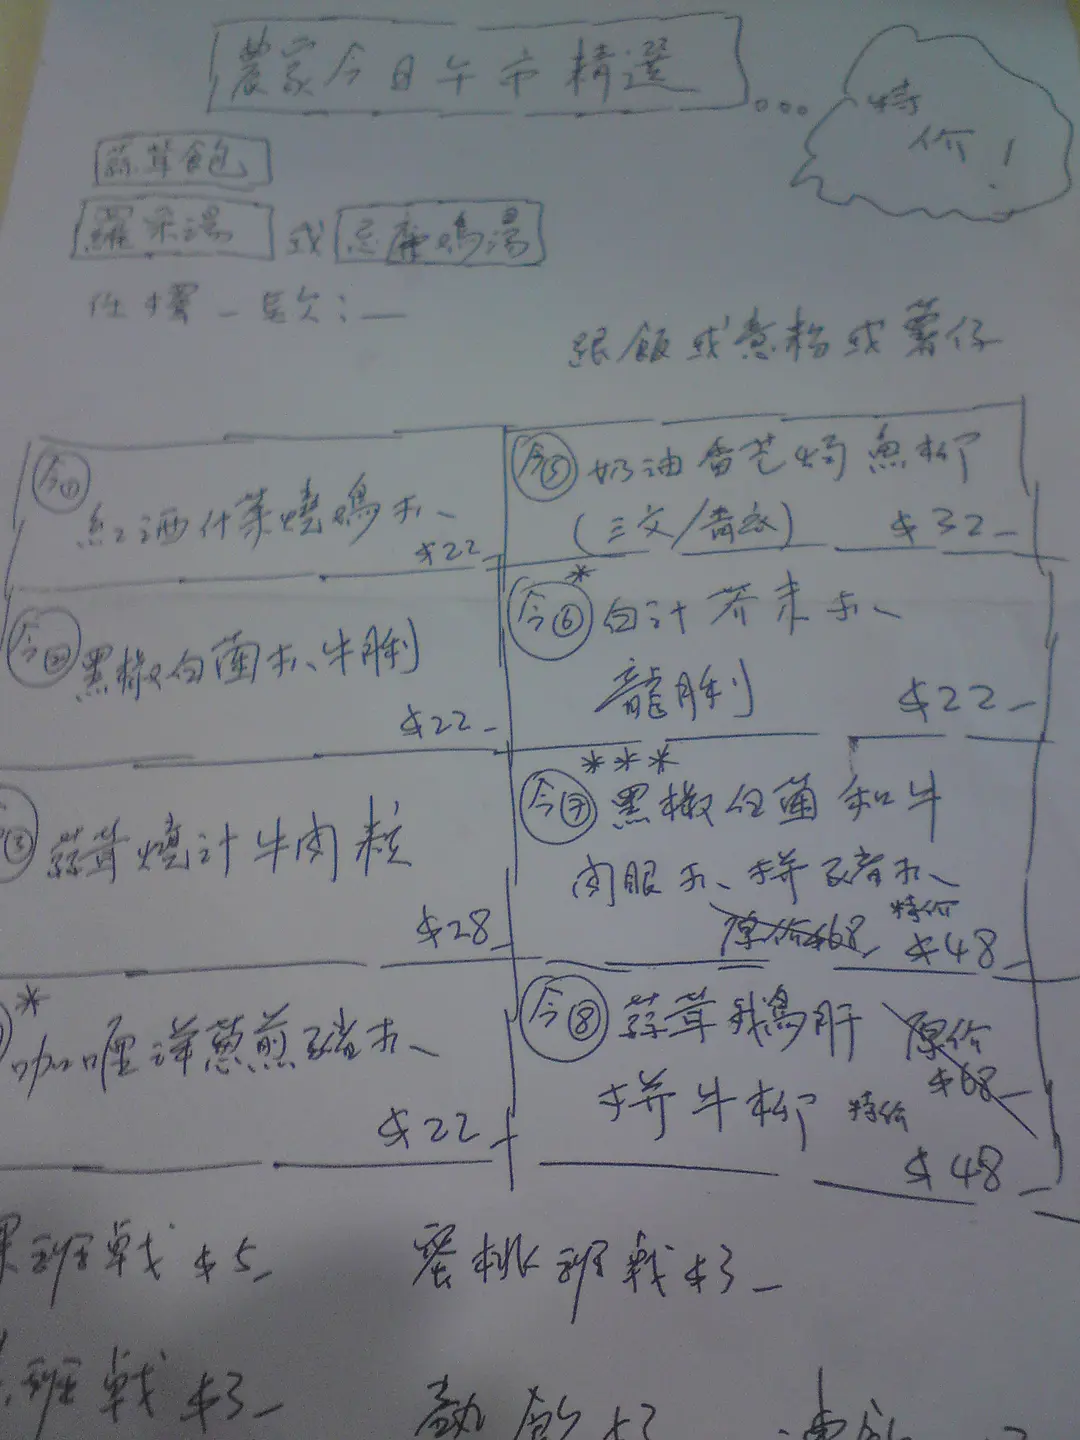 農家今日午市精選 ...
特
价!
蒜茸飽
羅宋湯 或 忌廉鳴湯
任擇一款:—
跟飯或意粉或薯仔
今①
紅酒什菜燒鳴扒
$22
今②
黑椒白菌扒牛脷
$22
③
蒜茸燒汁牛肉粒
$28
*
咖喱洋蔥煎豬扒
$22
今⑤ 奶油香芒焗魚柳
(三文/青衣) $32
*
今⑥ 白汁芥末扒
龍脷 $22
***
今⑦ 黑椒白菌和牛
肉眼扒拼豬扒
原价$68 特价
$48
今⑧ 蒜茸鵝肝 原价
$68
拼牛柳 特价
$48
班戟 $5
蜜桃班戟 $3
班戟 $3
熱飲 $3
凍飲